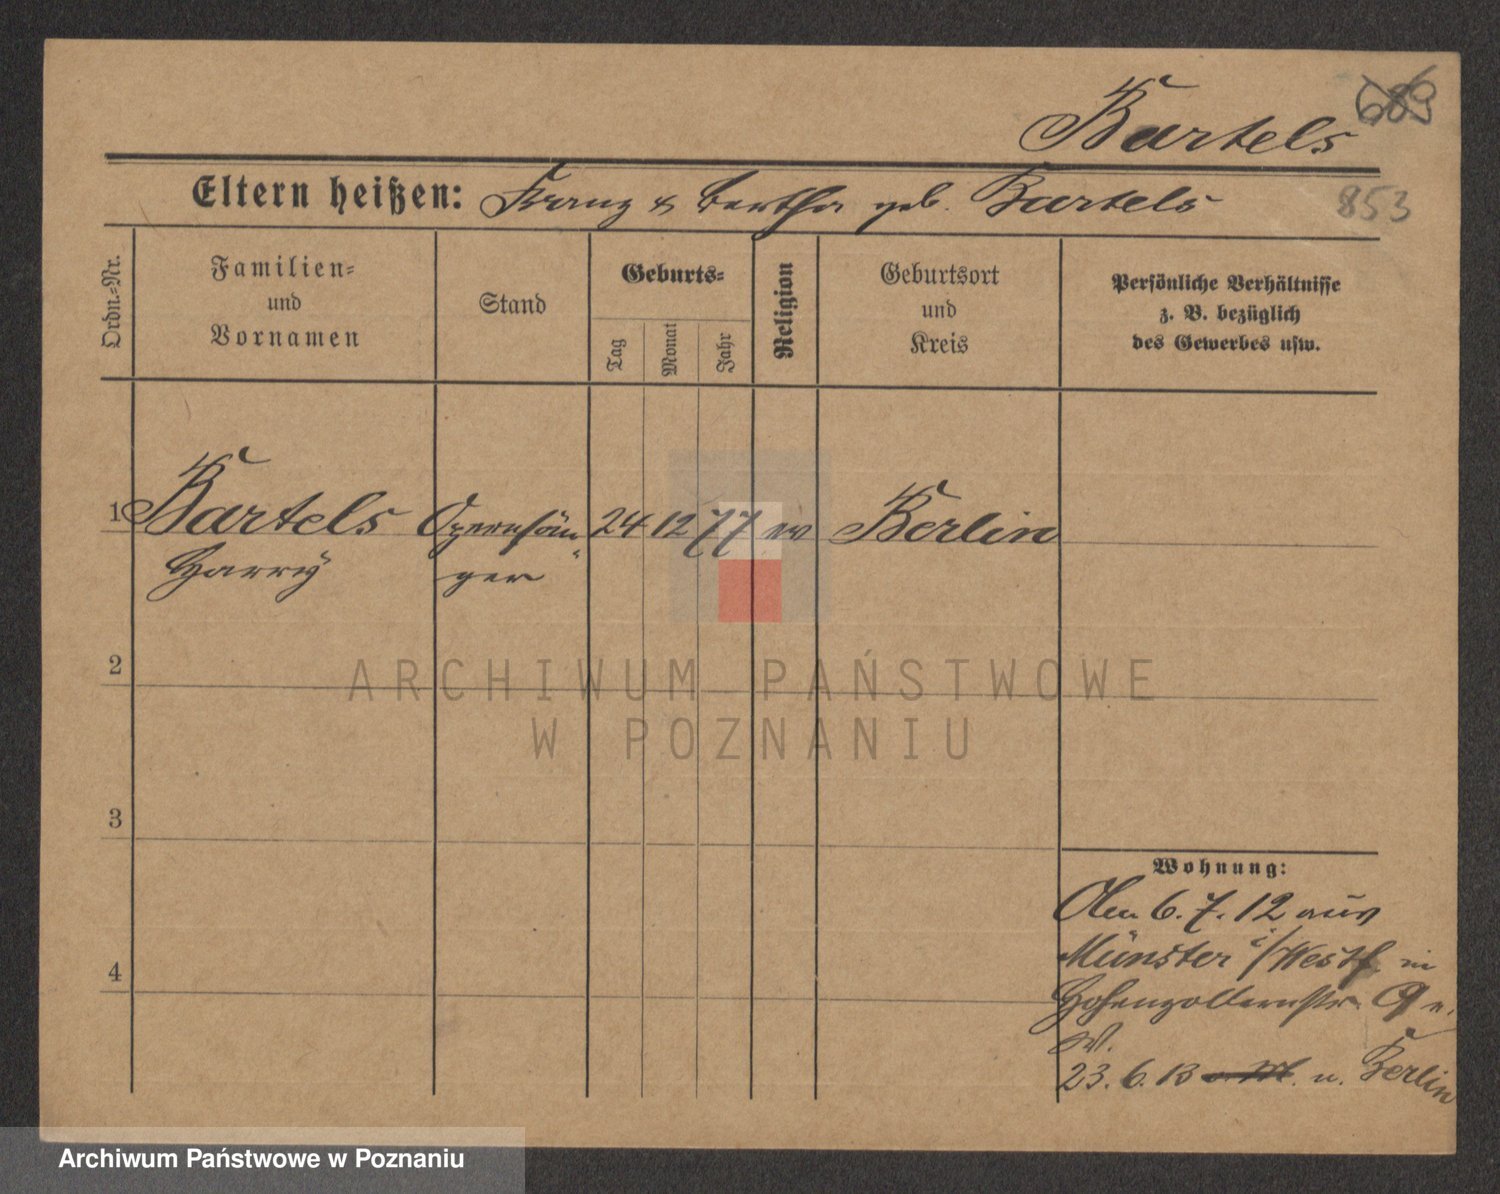 Bartels
683
Eltern heißen: Franz & Bertha geb. Bartels
853
Ordn.-Nr.
Familien-
und
Vornamen
Stand
Geburts-
Tag
Monat
Jahr
Religion
Geburtsort
und
Kreis
Persönliche Verhältnisse
z. B. bezüglich
des Gewerbes usw.
1 Bartels Opernsän- 24 12 77 ev Berlin
Harry ger
2
ARCHIWUM PAŃSTWOWE
W POZNANIU
3
Wohnung:
6.7.12 aus
Münster i/Westf. in
4
Hohenzollernstr. 9
23.6.13 n. Berlin
Archiwum Państwowe w Poznaniu